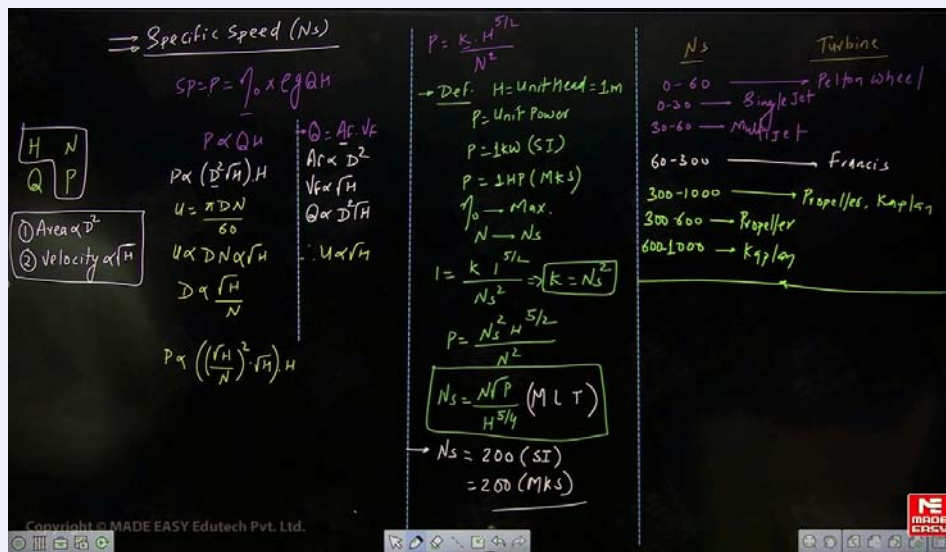 Specific Speed (Ns)
SP = P = η₀ × ρgQH
P ∝ QH
P ∝ (D²√H).H
u = πDN/60
u ∝ DN ∝ √H
D ∝ √H/N
P ∝ ((√H/N)²·√H).H
H N
Q P
① Area ∝ D²
② Velocity ∝ √H
→ Q = AF.VF
AF ∝ D²
VF ∝ √H
Q ∝ D²√H
∴ u ∝ √H
P = K.H^5/2/N²
→ Def. H = Unit Head = 1m
P = Unit Power
P = 1KW (SI)
P = 1HP (MKS)
η₀ → Max.
N → Ns
1 = K 1^5/2/Ns² ⇒ K = Ns²
P = Ns² H^5/2/N²
Ns = N√P/H^5/4 (M L T)
→ Ns = 200 (SI)
= 200 (MKS)
Ns Turbine
0-60 → Pelton wheel
0-30 → Single Jet
30-60 → Multi Jet
60-300 → Francis
300-1000 → Propeller, Kaplan
300-600 → Propeller
600-1000 → Kaplan
Copyright © MADE EASY Edutech Pvt. Ltd.
ME
MADE
EASY